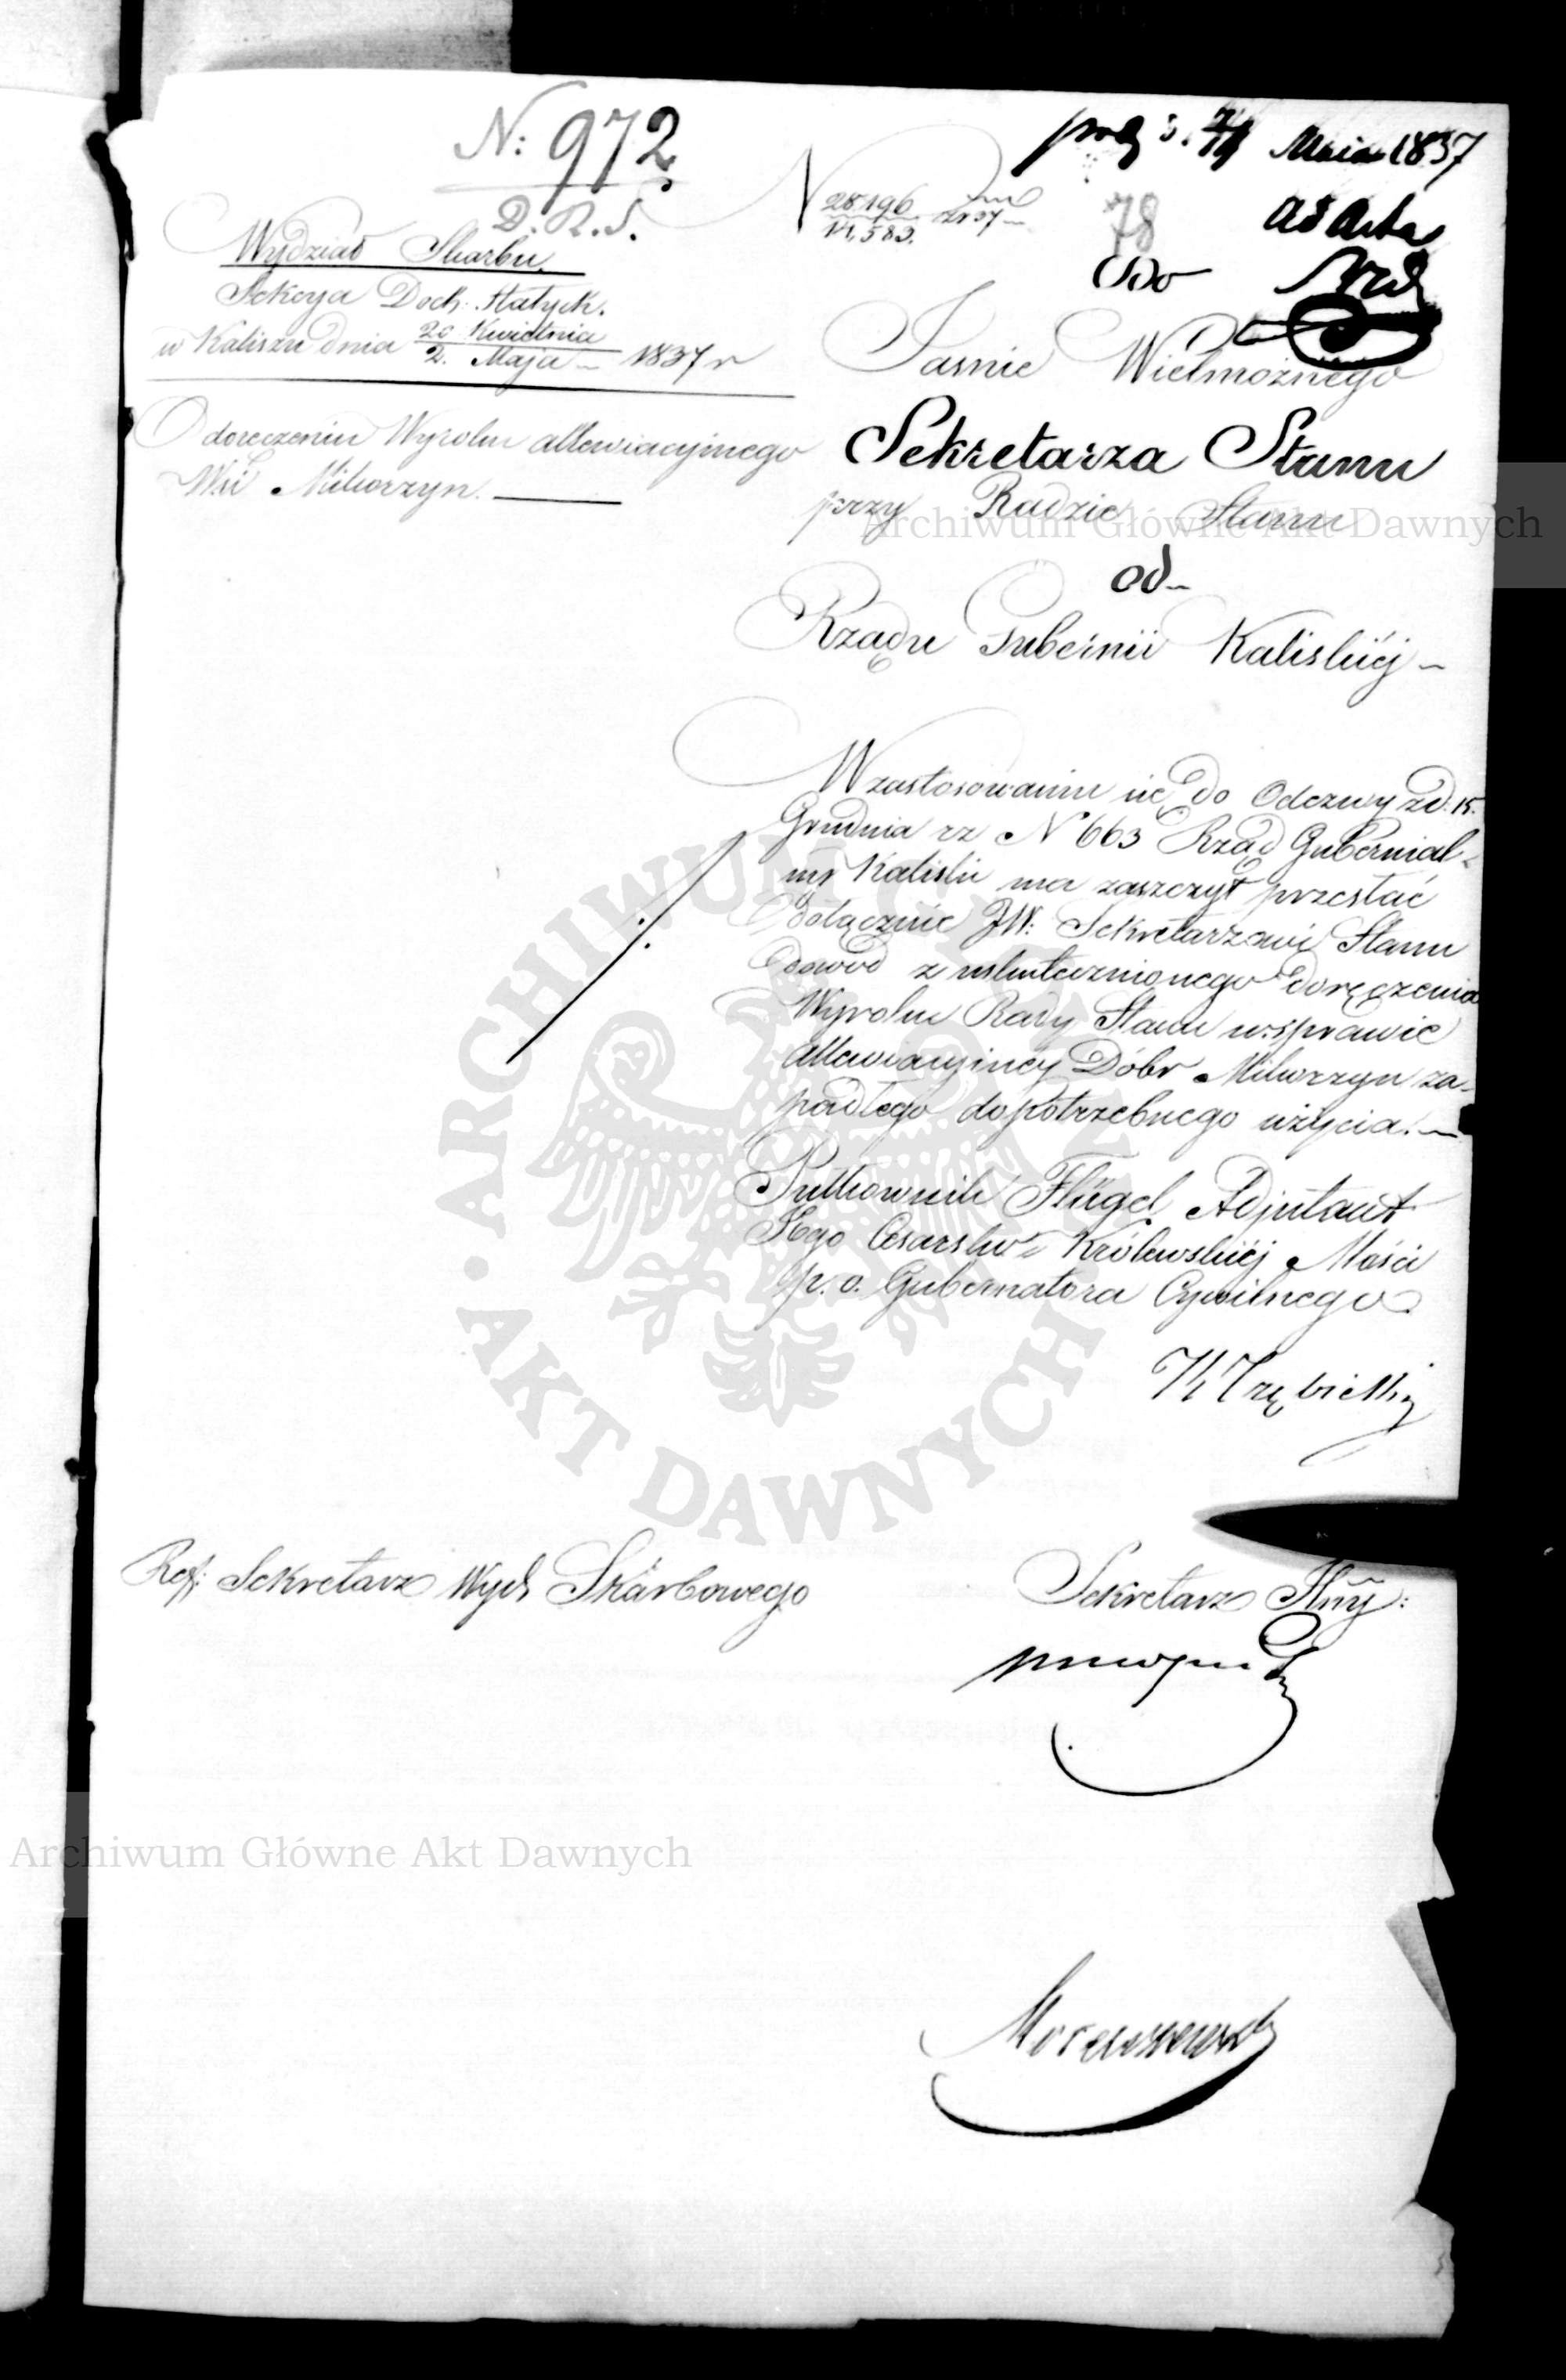 N: 972
D.R.S.
Wydział Skarbu.
Sekcya Doch: Statych.
w Kaliszu dnia 20 Kwietnia / 2. Maja – 1837 r
O doręczeniu Wyroku allewiacyjnego
Wsi Mikorzyn.
Maia 1837
ad Acta
N 28196 / 14,583.
78
Do
Jaśnie Wielmożnego
Sekretarza Stanu
przy Radzie Stanu
od
Rządu Gubernii Kaliskiéj –
W zastosowaniu się do Odezwy z d. 15.
Grudnia r z N 663 Rząd Gubernial-
ny Kaliski ma zaszczyt przesłać
dołącznie JW: Sekretarzowi Stanu
dowód z uskutecznionego doręczenia
Wyroku Rady Stanu w sprawie
allewiacyjney Dóbr Mikorzyn za-
padłego do potrzebnego użycia. –
Pułkownik Flügel Adjutant
Jego Cesarsko Królewskiéj Mości
p. o. Gubernatora Cywilnego
Ref: Sekretarz Wydz Skarbowego
Sekretarz
Archiwum Główne Akt Dawnych
Archiwum Główne Akt Dawnych
ARCHIWUM GŁÓWNE AKT DAWNYCH